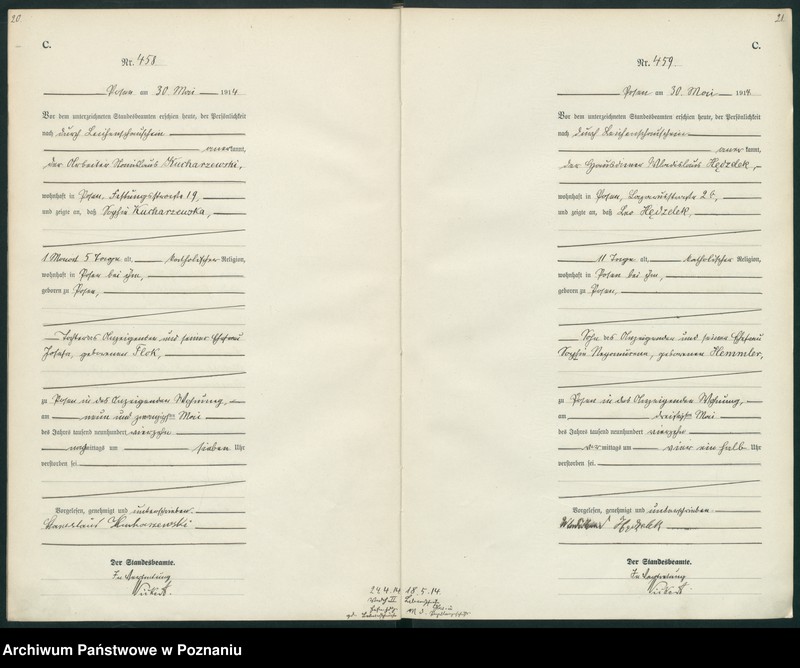 20.
C.
Nr. 458
Posen am 30. Mai 1914
Vor dem unterzeichneten Standesbeamten erschien heute, der Persönlichkeit
nach durch Leichenschauschein
anerkannt,
der Arbeiter Stanislaus Kucharzewski,
wohnhaft in Posen, Festungsstraße 19,
und zeigte an, daß Sophie Kucharzewska,
1 Monat 5 Tage alt, katholischer Religion,
wohnhaft in Posen bei ihm,
geboren zu Posen,
Tochter des Anzeigenden und seiner Ehefrau
Josefa, geborenen Flok,
zu Posen in des Anzeigenden Wohnung,
am neun und zwanzigsten Mai
des Jahres tausend neunhundert vierzehn
nachmittags um sieben Uhr
verstorben sei.
Vorgelesen, genehmigt und unterschrieben.
Kucharzewski
Der Standesbeamte.
In Vertretung
21
C.
Nr. 459
Posen am 30. Mai 1914
Vor dem unterzeichneten Standesbeamten erschien heute, der Persönlichkeit
nach durch Leichenschauschein
anerkannt,
der Hausdiener Wladislaus Hędzelek,
wohnhaft in Posen, 26,
und zeigte an, daß Leo Hędzelek,
11 Tage alt, katholischer Religion,
wohnhaft in Posen bei ihm,
geboren zu Posen,
Sohn des Anzeigenden und seiner Ehefrau
Sophie geborenen Hemmler,
zu Posen in des Anzeigenden Wohnung,
am dreißigsten Mai
des Jahres tausend neunhundert vierzehn
vormittags um vier ein halb Uhr
verstorben sei.
Vorgelesen, genehmigt und unterschrieben.
Der Standesbeamte.
In Vertretung
29.4.14 18.5.14.
Archiwum Państwowe w Poznaniu